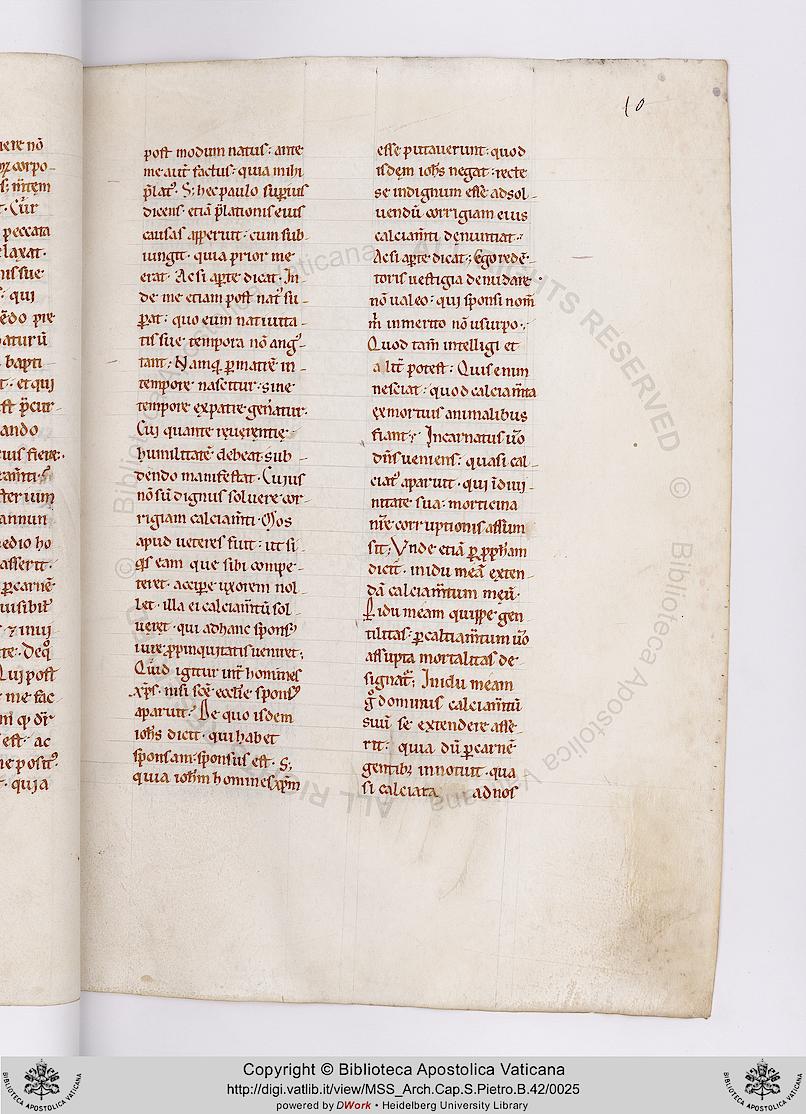 10
uere nō
corpo-
peccata
elaxat.
nis sue
: qui
ēdo pre
naturū
bapti
t. et qui
ando
eius fiere:
ster uim
annun
edio ho
asserit.
p carnē
uisibit᷒
Qui post
me fac
est. ac
t. quia
post modum natus: ante
me aut̄ factus: quia mihi
p̄lat᷒. S; hec paulo supius
dicens. etiā p̄lationis eius
causas apperuit: cum sub-
iungit. quia prior me
erat. Ac si apte dicat. In-
de me etiam post nat᷒ su-
pat: quo eum natiuita-
tis sue tempora nō ang᷒-
tant; Namq; p matrē in-
tempore nascitur: sine
tempore ex patre gen̄atur.
Cui quante reuerentie
humilitatē debeat sub-
dendo manifestat. Cuius
nō sū dignus soluere cor-
rigiam calciam̄ti. Mos
apud ueteres fuit: ut si-
q̄s eam que sibi compe-
teret. accipe uxorem nol-
let. illa ei calciam̄tū sol-
ueret. qui ad hanc spons᷒
iure p̄pinquitatis ueniret;
Quid igitur int̄ homines
xp̄s. nisi scē eccl̄ie spons᷒
aparuit? De quo isdem
ioh̄s dicit. qui habet
sponsam: sponsus est. S;
quia ioh̄m homines xp̄m
esse putauerunt: quod
isdem ioh̄s negat: recte
se indignum esse ad sol-
uendū corrigiam eius
calciam̄ti denuntiat.
Ac si apte dicat; Ego redē-
toris uestigia denudare
nō ualeo: qui sponsi nom̄
m̄ inmerito nō usurpo.
Quod tam̄ intelligi et
alit̄ potest. Quis enim
nesciat: quod calciam̄ta
ex mortuis animalibus
fiant? Incarnatus u̅o
dn̄s ueniens: quasi cal-
ciat᷒ aparuit. qui ī diui-
nitate sua: morticina
nr̄e corruptionis assum-
sit; Vnde etiā p p̄ph̄am
dicit. in idumeā exten-
dā calciam̄tum meū.
P idumeam quippe gen-
tilitas: p calciam̄tum u̅o
assupta mortalitas de-
signat᷑; In idumeam
g̊ dominus calciam̄tū
suū se extendere asse-
rit: quia dū p carnē
gentib; innotuit. qua
si calciata ad nos
© Biblioteca Apostolica Vaticana ALL RIGHTS RESERVED © Biblioteca Apostolica Vaticana ALL RIGHTS RESERVED
BIBLIOTECA APOSTOLICA VATICANA
Copyright © Biblioteca Apostolica Vaticana
http://digi.vatlib.it/view/MSS_Arch.Cap.S.Pietro.B.42/0025
powered by DWork • Heidelberg University Library
BIBLIOTECA APOSTOLICA VATICANA